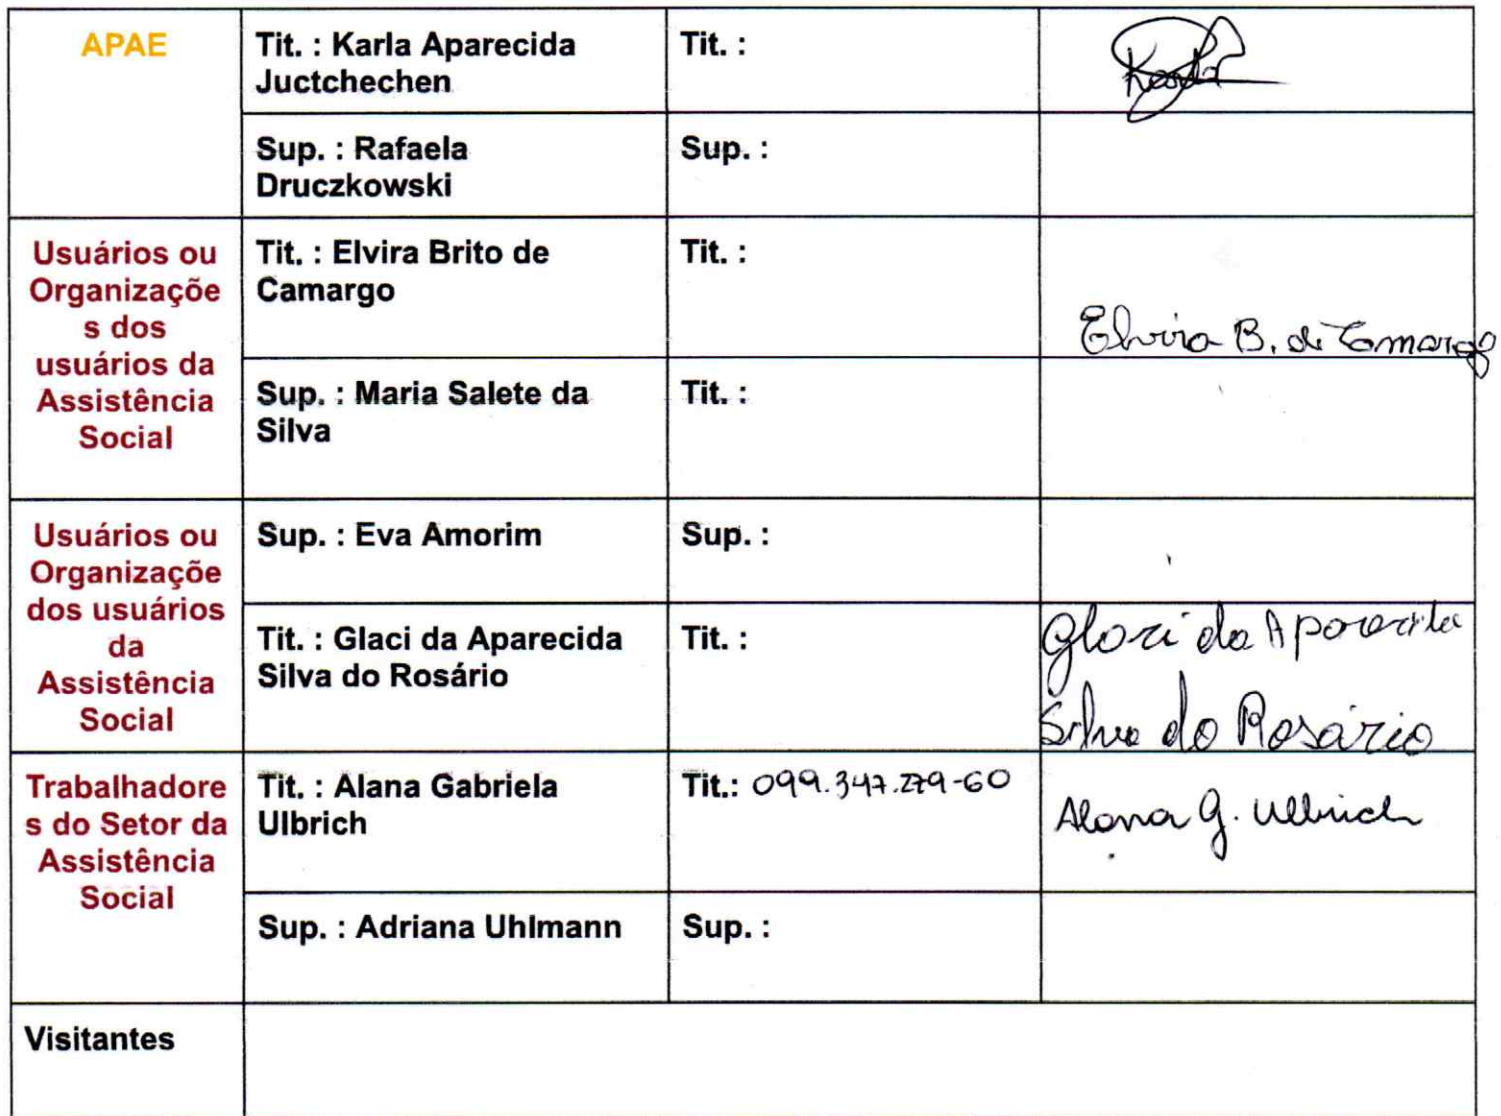 APAE
Tit. : Karla Aparecida
Juctchechen
Tit. :
Karla
Sup. : Rafaela
Druczkowski
Sup. :
Usuários ou
Organizaçõe
s dos
usuários da
Assistência
Social
Tit. : Elvira Brito de
Camargo
Tit. :
Elvira B. de Camargo
Sup. : Maria Salete da
Silva
Tit. :
Usuários ou
Organizaçõe
dos usuários
da
Assistência
Social
Sup. : Eva Amorim
Sup. :
Tit. : Glaci da Aparecida
Silva do Rosário
Tit. :
Glaci da Aparecida
Silva do Rosário
Trabalhadore
s do Setor da
Assistência
Social
Tit. : Alana Gabriela
Ulbrich
Tit.: 099.347.279-60
Alana G. Ulbrich
Sup. : Adriana Uhlmann
Sup. :
Visitantes